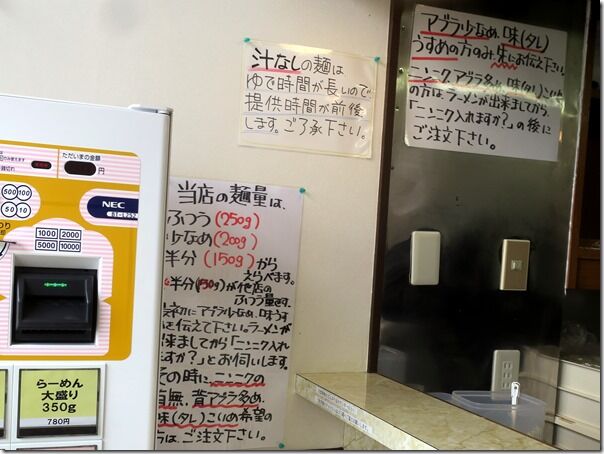 アブラ少なめ、味(タレ)
うすめの方のみ、先にお伝え下さい。
ニンニク アブラ多め、味(タレ)こいめ
の方は、ラーメンが出来ましてから、
「ニンニク入れますか？」の後に
ご注文下さい。
汁なしの麺は
ゆで時間が長いので
提供時間が前後
します。ご了承下さい。
ただいまの金額
円
500 100
50 10
1000 2000
5000 10000
NEC
BT-L252
らーめん
大盛り
350g
780円
当店の麺量は、
ふつう(250g)
少なめ(200g)
半分(150g)から
えらべます。
半分(150g)が他店の
ふつう量です。
にアブラ少なめ、味うす
を伝えて下さい。ラーメンが
来ましてから「ニンニク入れ
ますか？」とお伺いします。
その時にニンニクの
有無、背アブラ多め、
味(タレ)こいめ希望の
方は、ご注文下さい。